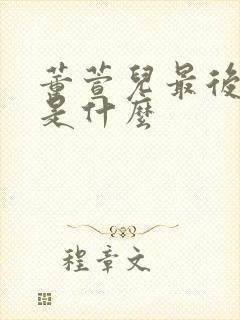 董萱兒最後
是什麼
程章文